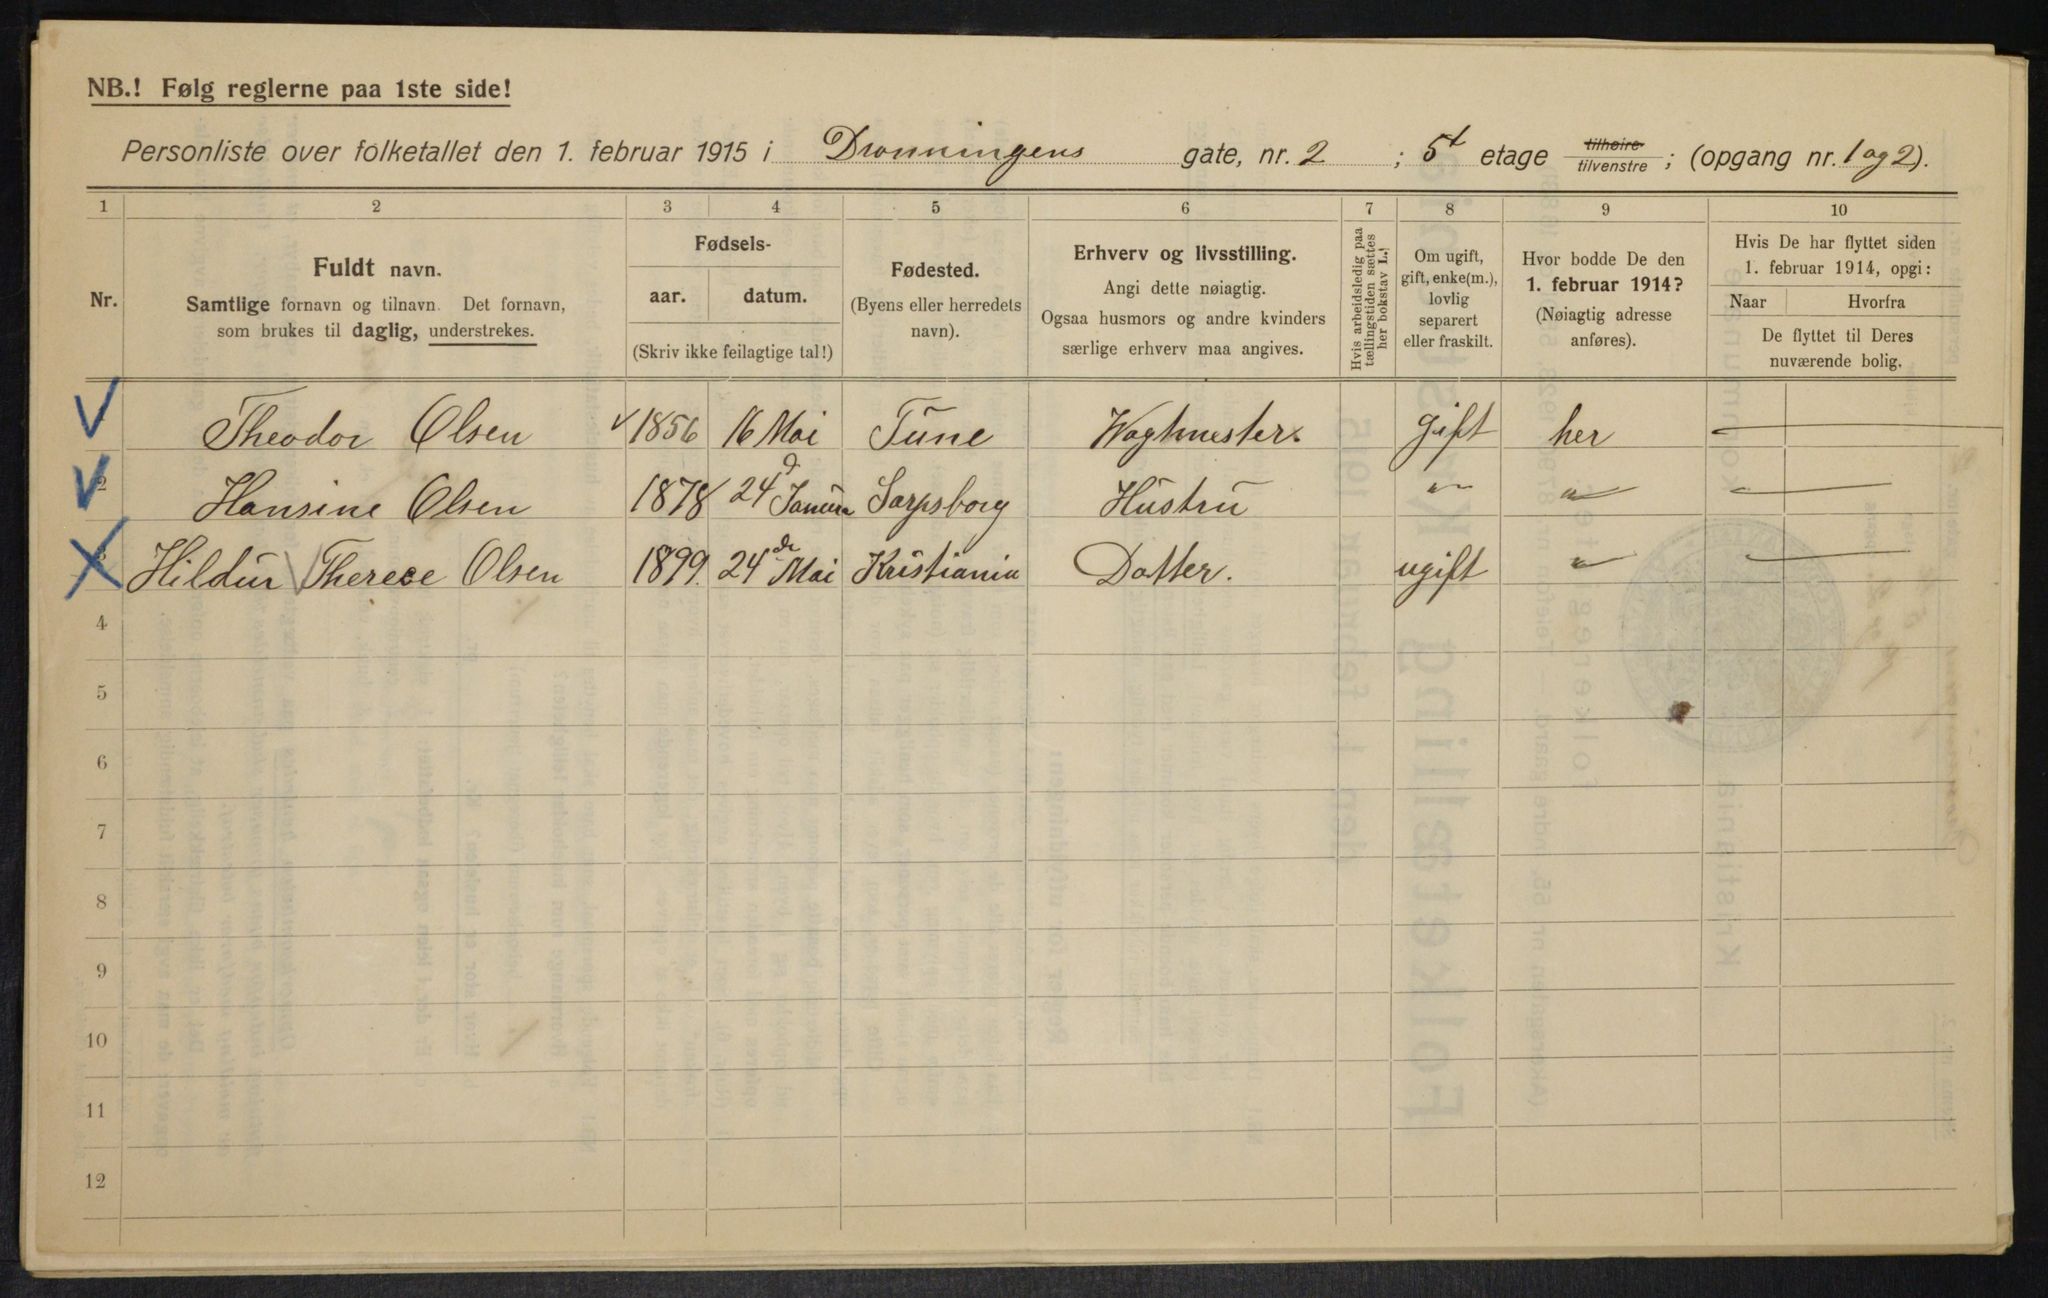 NB.! Følg reglerne paa 1ste side!
Personliste over folketallet den 1. februar 1915 i Dronningens gate, nr. 2 ; 5t etage tilhøire tilvenstre ; (opgang nr. 1 og 2).
1 2 3 4 5 6 7 8 9 10
Nr.
Fuldt navn.
Samtlige fornavn og tilnavn. Det fornavn,
som brukes til daglig, understrekes.
Fødsels-
aar. datum.
(Skriv ikke feilagtige tal!)
Fødested.
(Byens eller herredets
navn).
Erhverv og livsstilling.
Angi dette nøiagtig.
Ogsaa husmors og andre kvinders
særlige erhverv maa angives.
Hvis arbeidsledig paa
tællingstiden sættes
her bokstav L.!
Om ugift,
gift, enke(m.),
lovlig
separert
eller fraskilt.
Hvor bodde De den
1. februar 1914?
(Nøiagtig adresse
anføres).
Hvis De har flyttet siden
1. februar 1914, opgi:
Naar Hvorfra
De flyttet til Deres
nuværende bolig.
1 Theodor Olsen 1856 16 Mai Tune Vagtmester. gift her —
2 Hansine Olsen 1878 24d Sarpsborg Hustru " " —
3 Hildur Therese Olsen 1899. 24de Mai Kristiania Datter. ugift " —
4
5
6
7
8
9
10
11
12